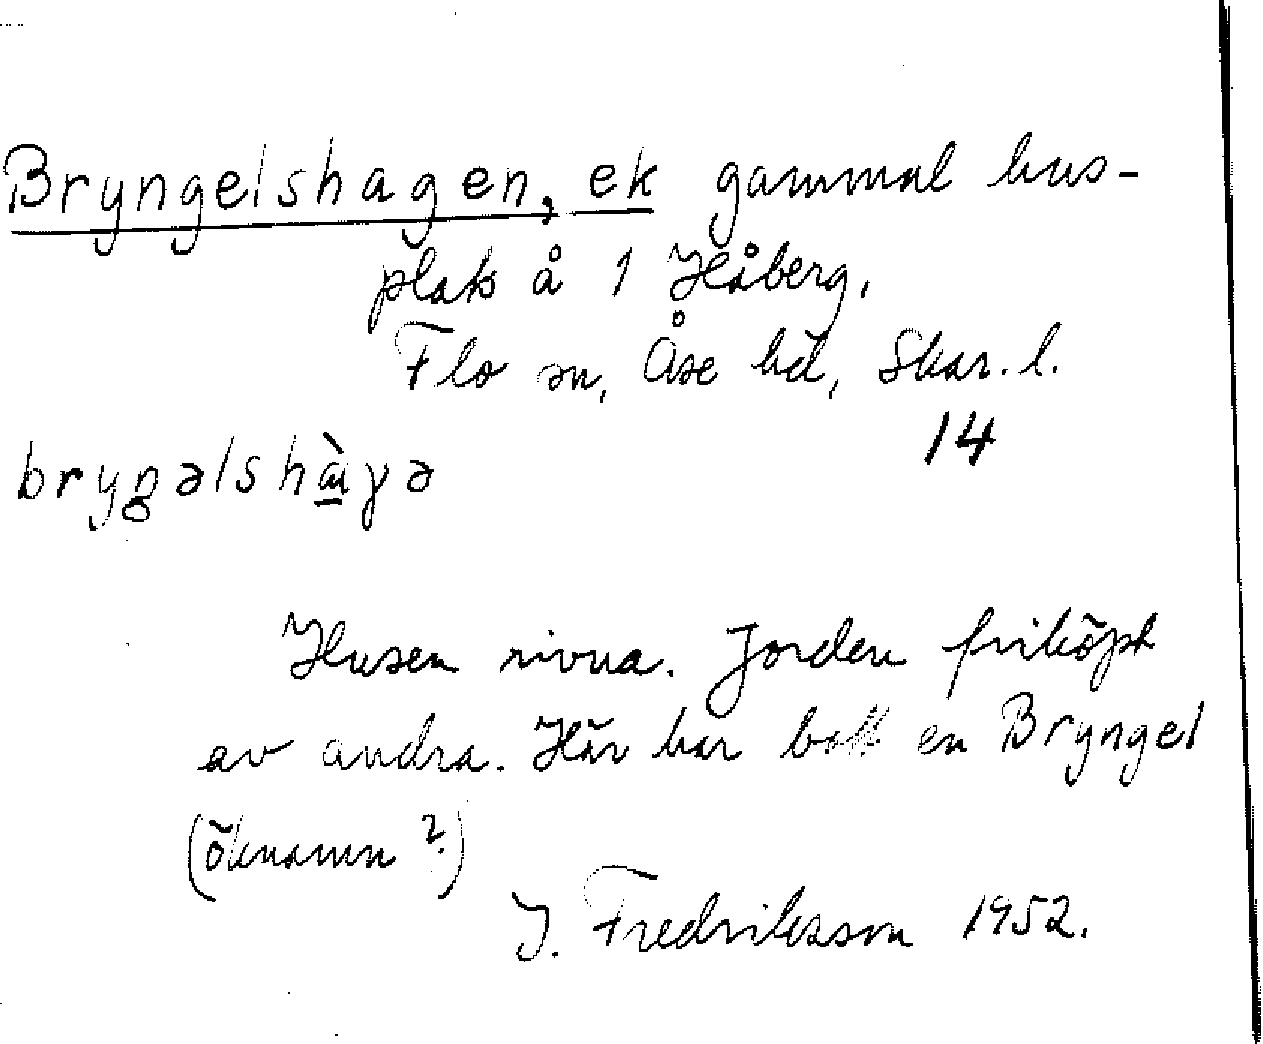 Bryngelshagen, ek gammal hus-
plats å 1 Håberg,
Flo sn, Åse hd, Skar. l.
14
bryŋəlshàɣə
Husen rivna. Jorden friköpt
av andra. Här har bott en Bryngel
(öknamn?)
J. Fredriksson 1952.